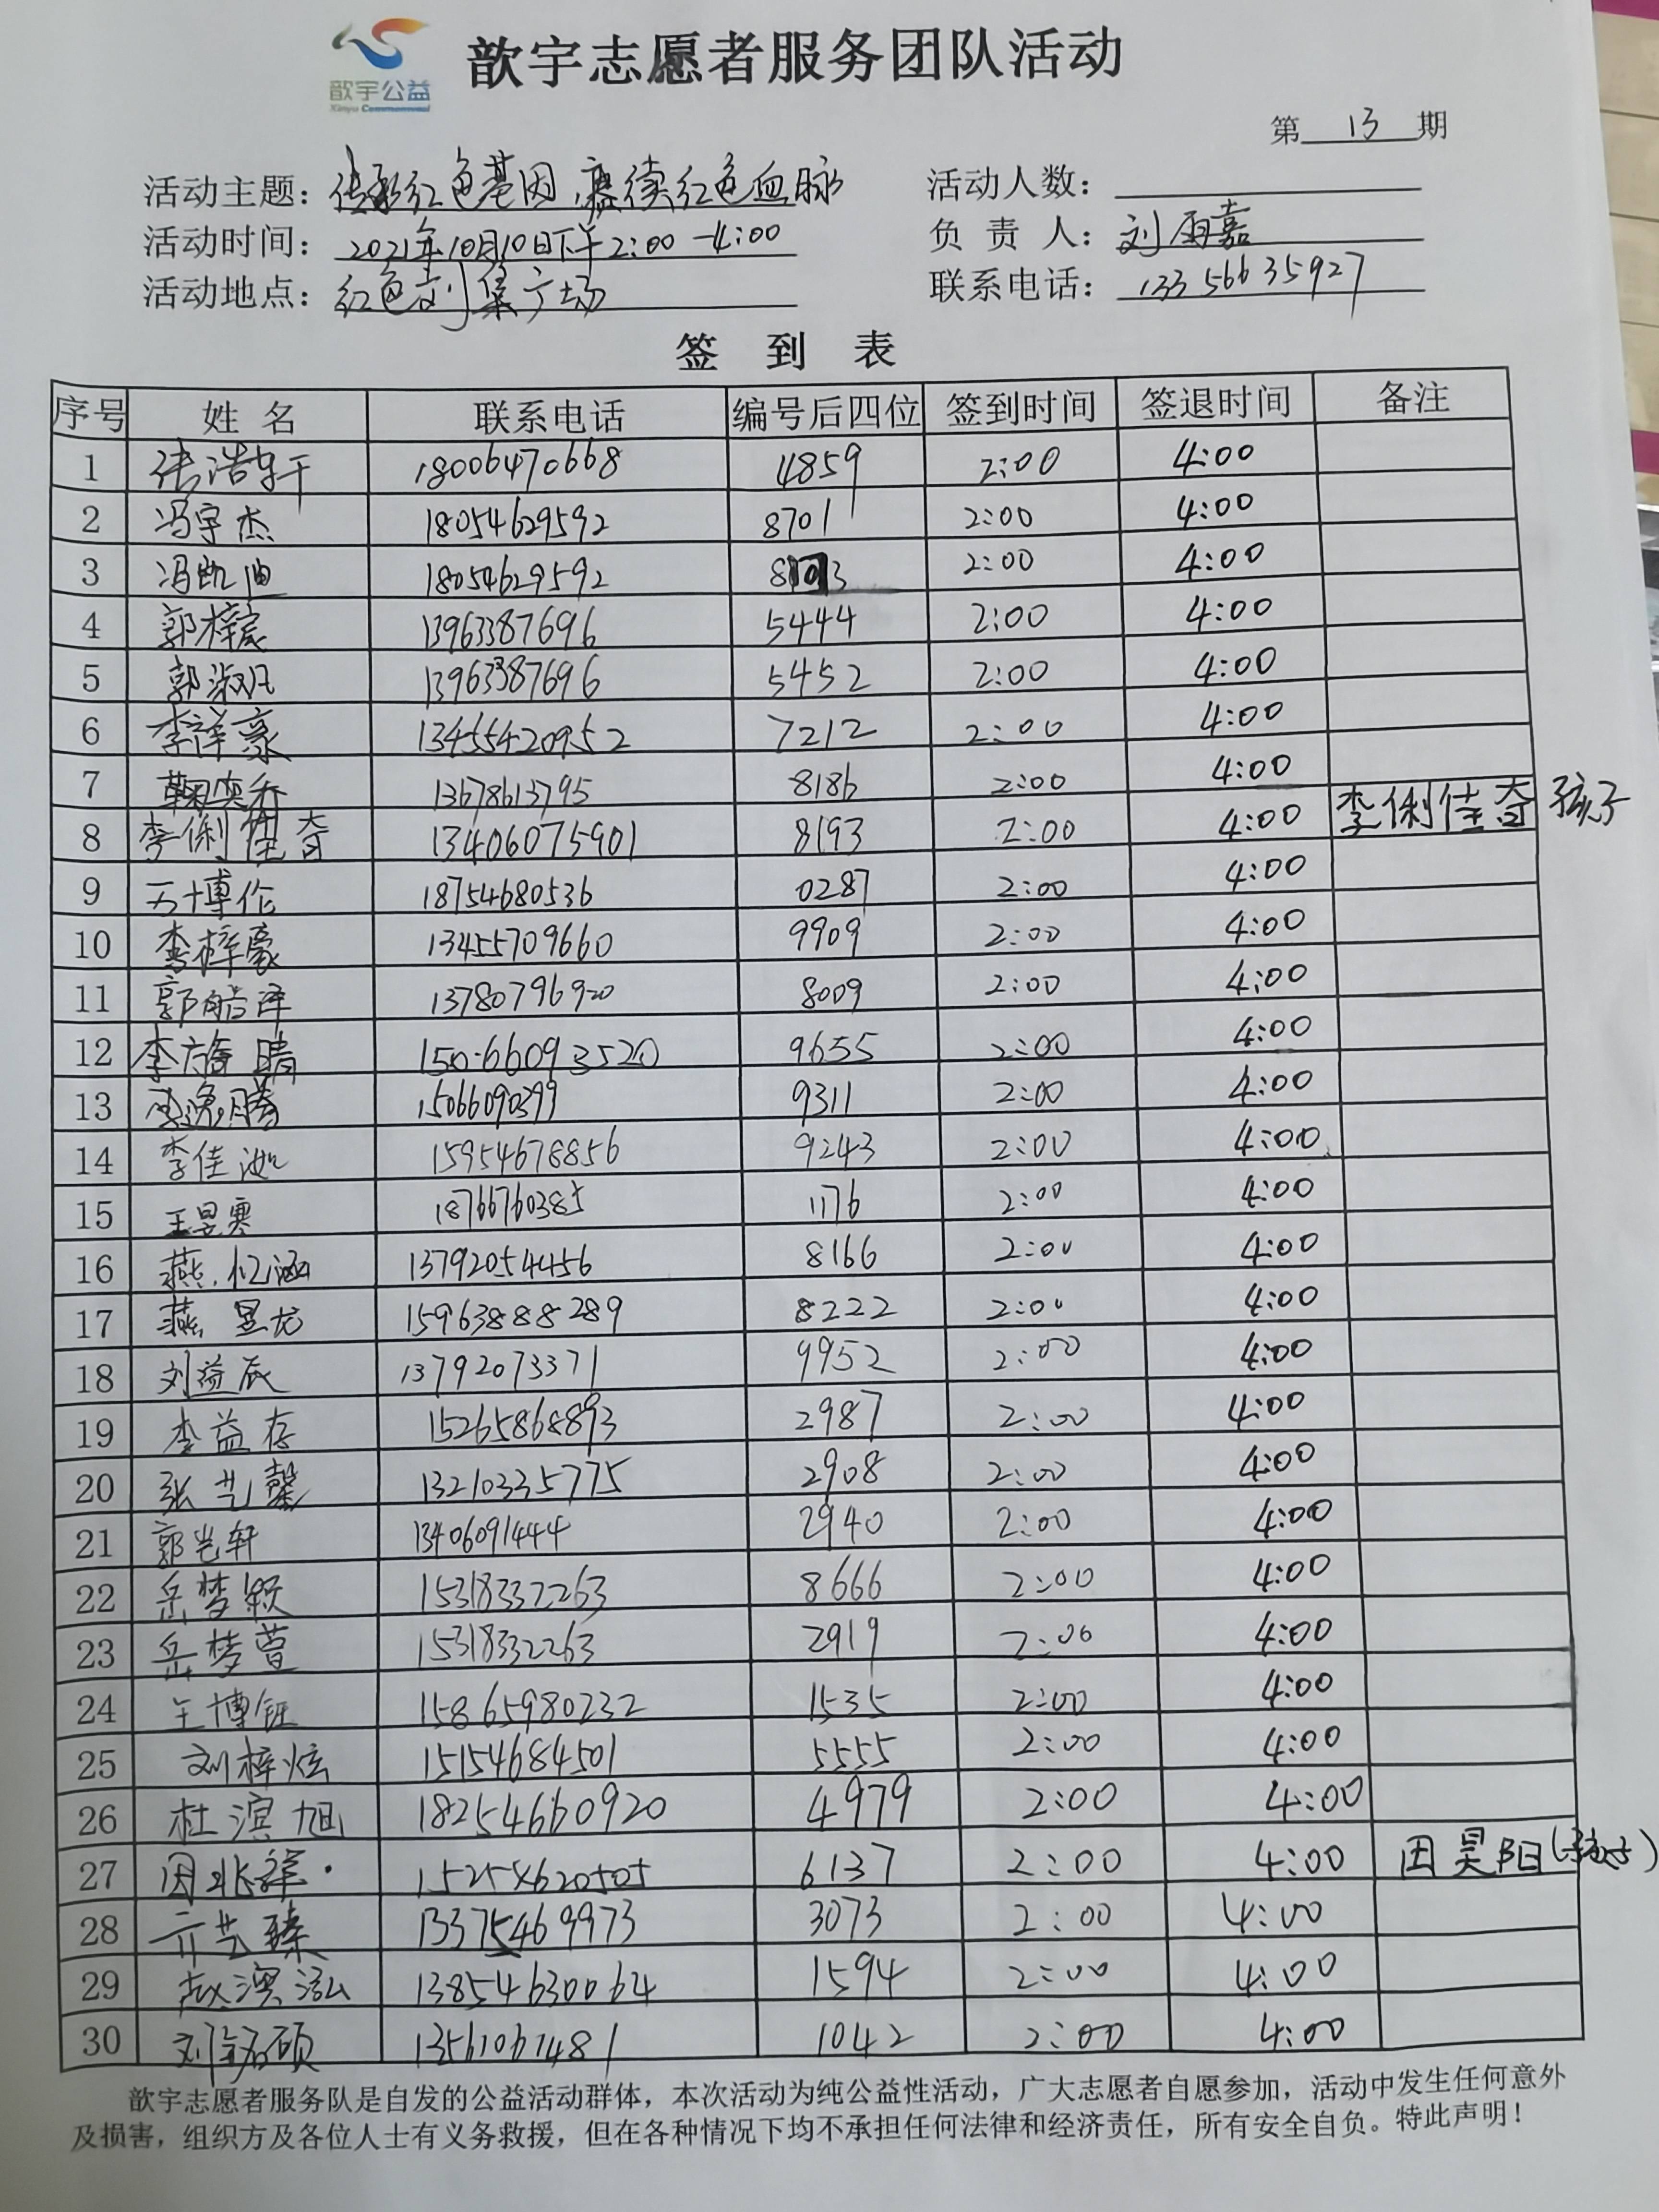 歆宇公益
Xinyu Commonweal
歆宇志愿者服务团队活动
第 13 期
活动主题：传承红色基因，赓续红色血脉 活动人数：
活动时间：2021年10月10日下午2:00-4:00 负 责 人：刘雨嘉
活动地点：红色刘集广场 联系电话：13356635927
签 到 表
序号 姓 名 联系电话 编号后四位 签到时间 签退时间 备注
1 张浩轩 18006470668 4859 2:00 4:00
2 冯宇杰 18054629592 8701 2:00 4:00
3 冯凯迪 18054629592 8703 2:00 4:00
4 郭梓宸 13963387696 5444 2:00 4:00
5 郭淑凡 13963387696 5452 2:00 4:00
6 李祥豪 13455420952 7212 2:00 4:00
7 鞠奕乔 13678613795 8186 2:00 4:00
8 李俐佳奇 13406075901 8193 2:00 4:00 李俐佳奇 孩子
9 万博伦 18754680536 0287 2:00 4:00
10 李梓豪 13455709660 9909 2:00 4:00
11 郭皓泽 13780796920 8009 2:00 4:00
12 李 晴 150-66093520 9655 2:00 4:00
13 李逸腾 15066090399 9311 2:00 4:00
14 李佳 15954678856 9243 2:00 4:00
15 王昱寒 18766760385 1176 2:00 4:00
16 燕忆涵 13792054456 8166 2:00 4:00
17 燕昱龙 15963888289 8222 2:00 4:00
18 刘益辰 13792073371 9952 2:00 4:00
19 李益存 15265868893 2987 2:00 4:00
20 张艺馨 13210335775 2908 2:00 4:00
21 郭 轩 13406091444 2940 2:00 4:00
22 岳梦颖 15318332263 8666 2:00 4:00
23 岳梦萱 15318332263 2919 2:00 4:00
24 王博钰 15865980232 1535 2:00 4:00
25 刘梓炫 15154684501 5555 2:00 4:00
26 杜滨旭 18254660920 4979 2:00 4:00
27 因兆祥 6137 2:00 4:00 因昊阳（孩子）
28 亓艺臻 13375469973 3073 2:00 4:00
29 赵淏泓 13854630064 1594 2:00 4:00
30 刘铭硕 13561067481 1042 2:00 4:00
歆宇志愿者服务队是自发的公益活动群体，本次活动为纯公益性活动，广大志愿者自愿参加，活动中发生任何意外
及损害，组织方及各位人士有义务救援，但在各种情况下均不承担任何法律和经济责任，所有安全自负。特此声明！